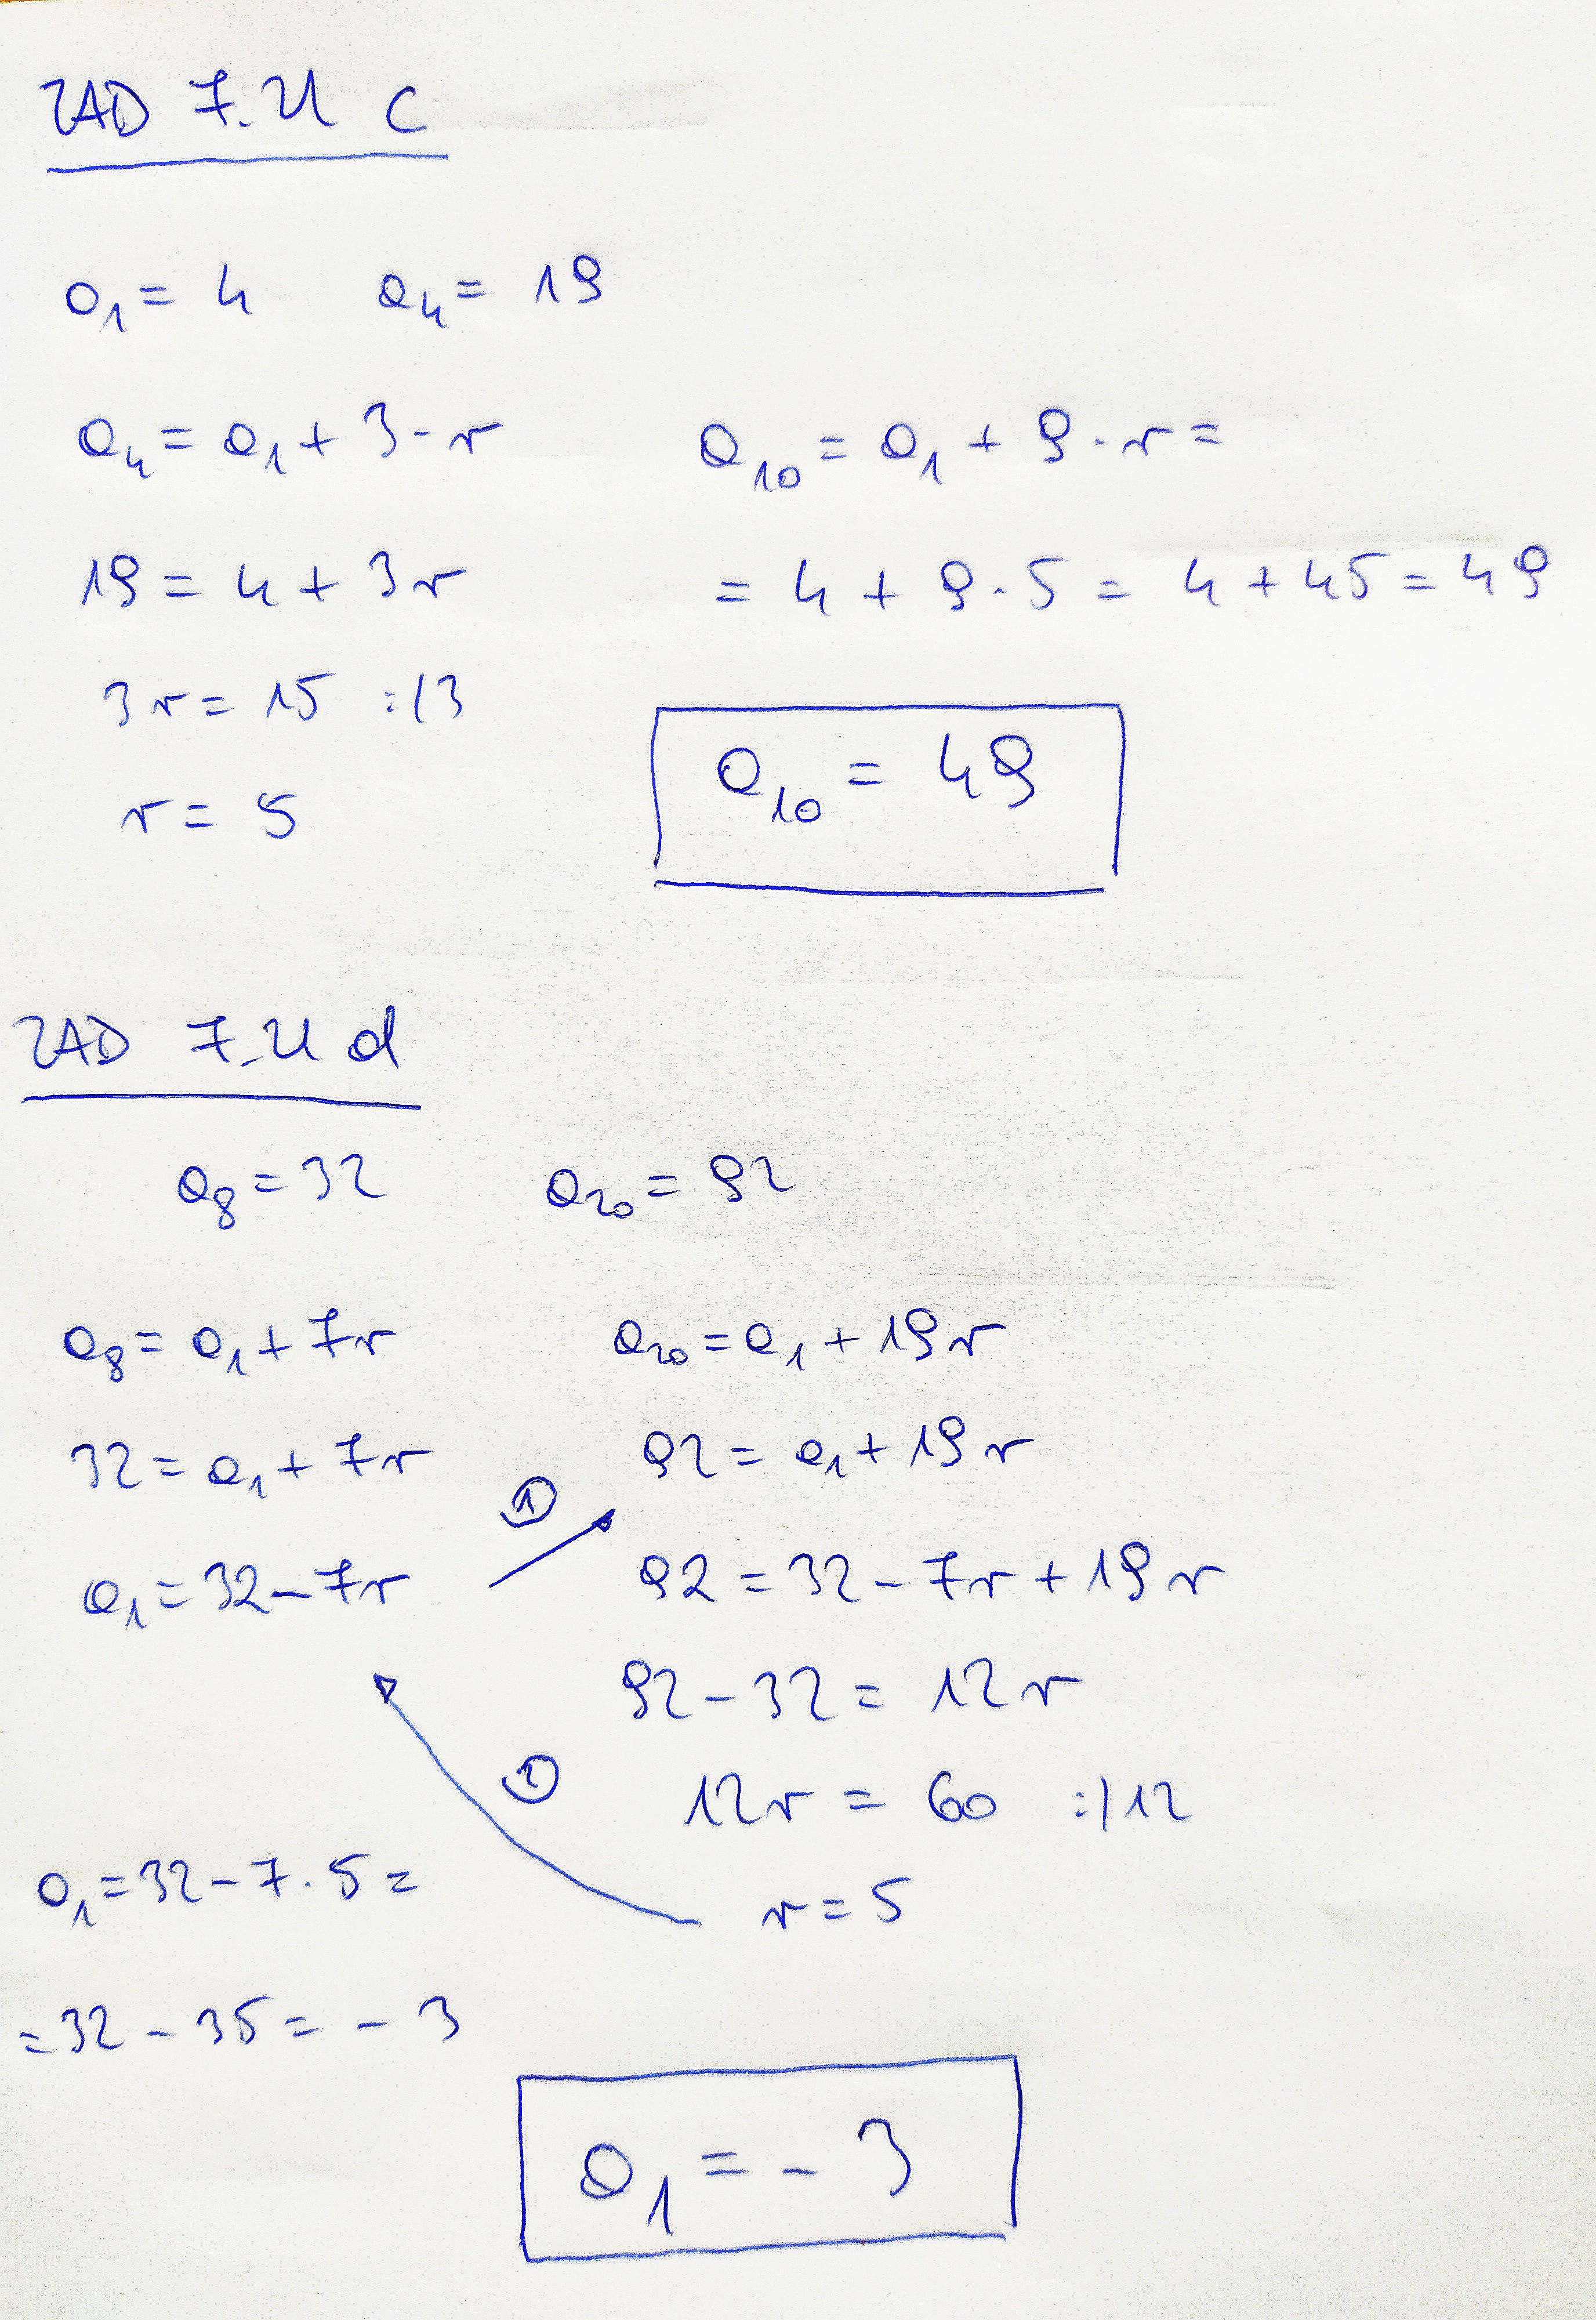 ZAD 7.21 c
a₁ = 4 a₄ = 19
a₄ = a₁ + 3 · r
19 = 4 + 3r
3r = 15 :/3
r = 5
a₁₀ = a₁ + 9 · r =
= 4 + 9 · 5 = 4 + 45 = 49
a₁₀ = 49
ZAD 7.21 d
a₈ = 32 a₂₀ = 92
a₈ = a₁ + 7r
32 = a₁ + 7r
a₁ = 32 - 7r
①
a₂₀ = a₁ + 19r
92 = a₁ + 19r
92 = 32 - 7r + 19r
92 - 32 = 12r
12r = 60 :/12
r = 5
a₁ = 32 - 7 · 5 =
= 32 - 35 = - 3
a₁ = - 3